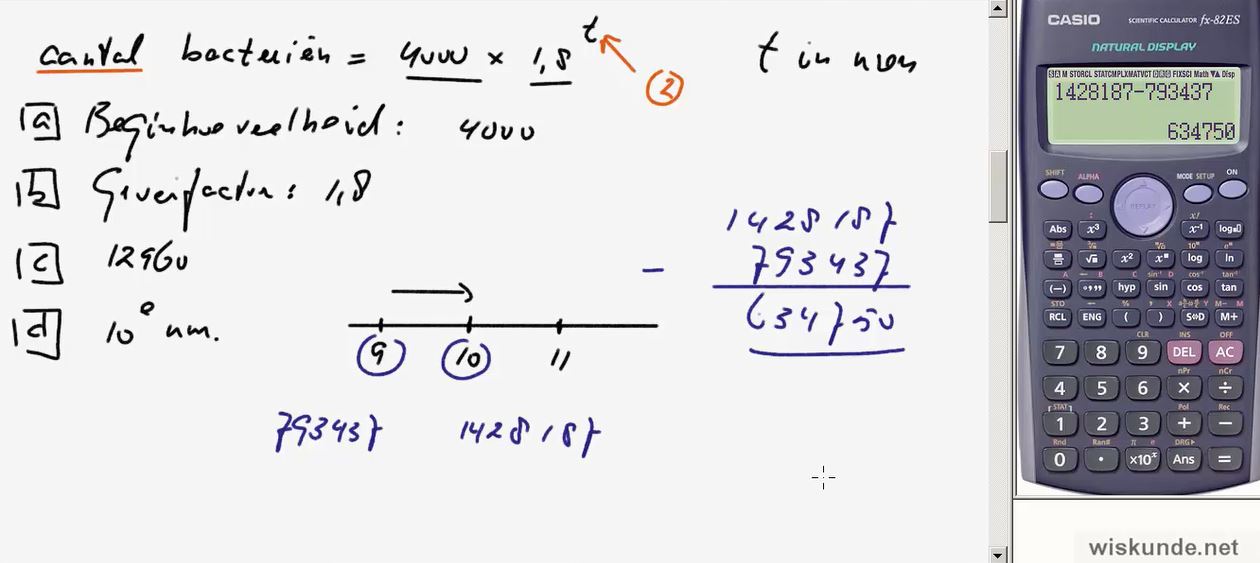 aantal bacteriën = 4000 × 1,8^t
t in uren
2
a Beginhoeveelheid : 4000
b Groeifactor : 1,8
c 12960
d 10e uur.
9 10 11
793437 1428187
1428187
− 793437
634750
CASIO SCIENTIFIC CALCULATOR fx-82ES
NATURAL DISPLAY
1428187−793437
634750
SHIFT ALPHA REPLAY MODE SETUP ON
Abs x³ x⁻¹ log
√ x² log ln
(−) hyp sin cos tan
RCL ENG ( ) S⇔D M+
7 8 9 DEL AC
4 5 6 × ÷
1 2 3 + −
0 . ×10ˣ Ans =
wiskunde.net